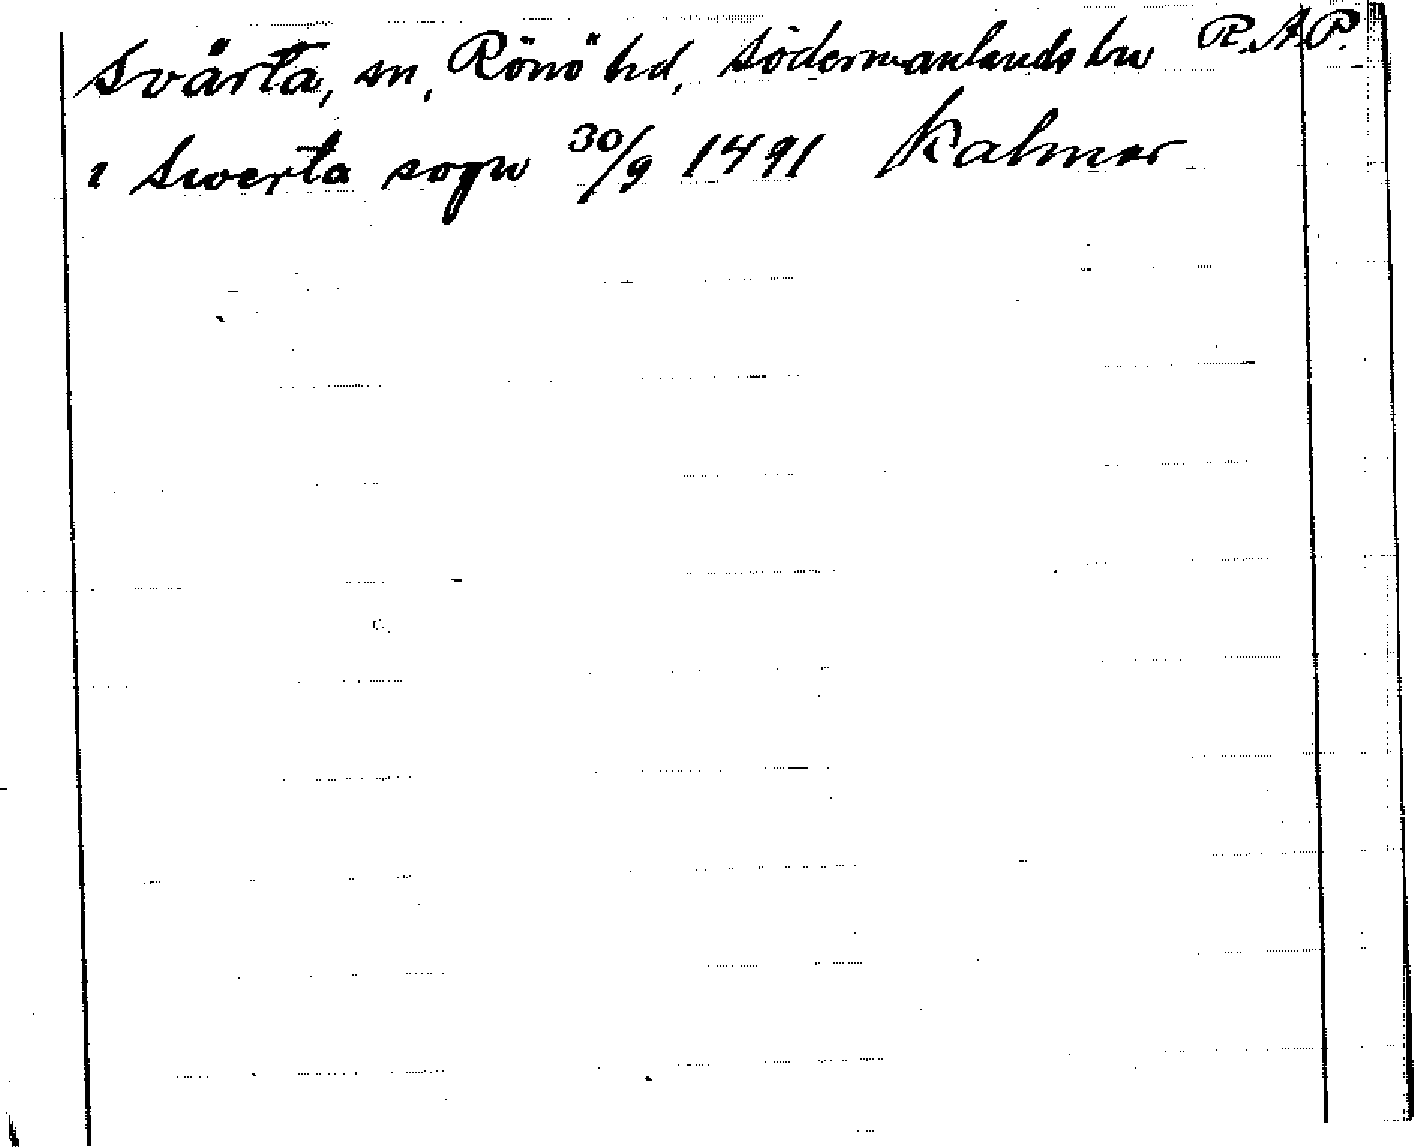 Svärta, sn, Rönö hd, Södermanlands län R.A.P.
i Swerta sogn 30/9 1491 Kalmar